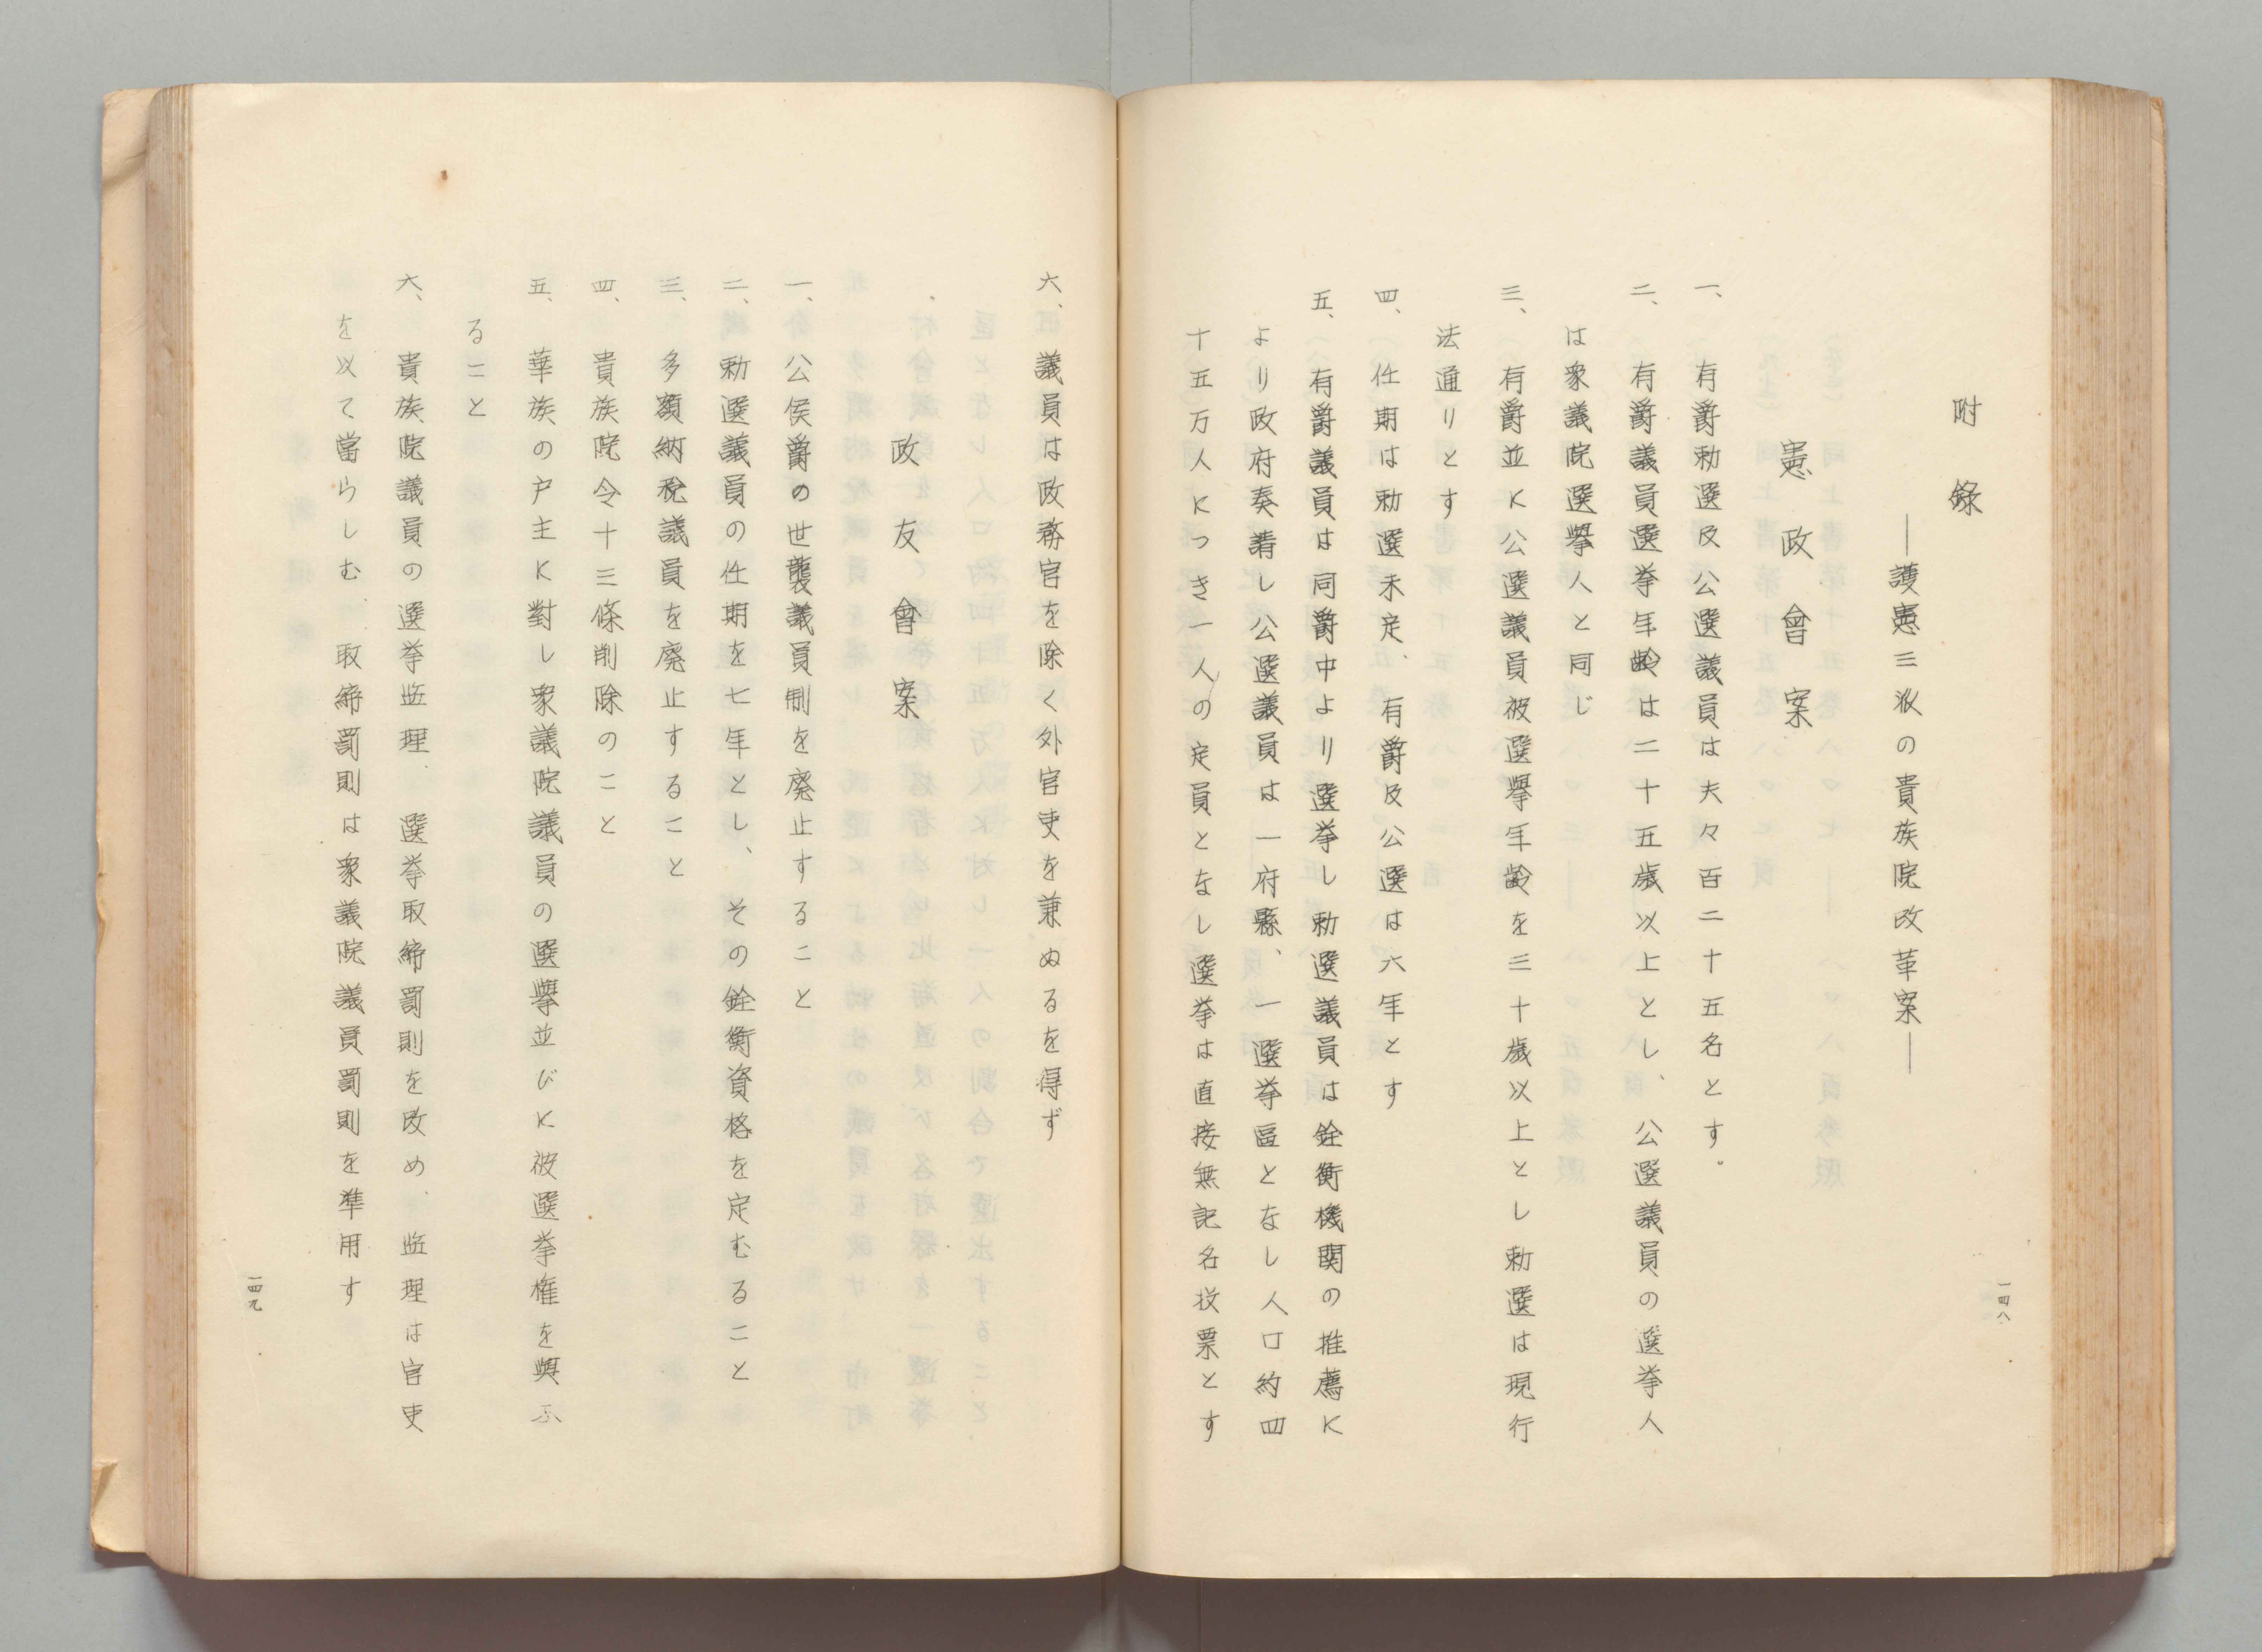 附錄
―護憲三派の貴族院改革案―
憲政會案
一、有爵勅選及公選議員は夫々百二十五名とす。
二、有爵議員選挙年齢は二十五歳以上とし、公選議員の選挙人
は衆議院選擧人と同じ
三、有爵並に公選議員被選擧年齢を三十歳以上とし勅選は現行
法通りとす
四、任期は勅選未定、有爵及公選は六年とす
五、有爵議員は同爵中より選挙し勅選議員は銓衡機関の推薦に
より政府奏請し公選議員は一府縣、一選挙區となし人口約四
十五万人につき一人の定員となし選挙は直接無記名投票とす
一四八
六、議員は政務官を除く外官吏を兼ぬるを得ず
政友會案
一、公侯爵の世襲議員制を廃止すること
二、勅選議員の任期を七年とし、その銓衡資格を定むること
三、多額納税議員を廃止すること
四、貴族院令十三條削除のこと
五、華族の戸主に對し衆議院議員の選擧並びに被選挙権を興ふ
ること
六、貴族院議員の選挙監理、選挙取締罰則を改め、監理は官吏
を以て當らしむ、取締罰則は衆議院議員罰則を準用す
一四九